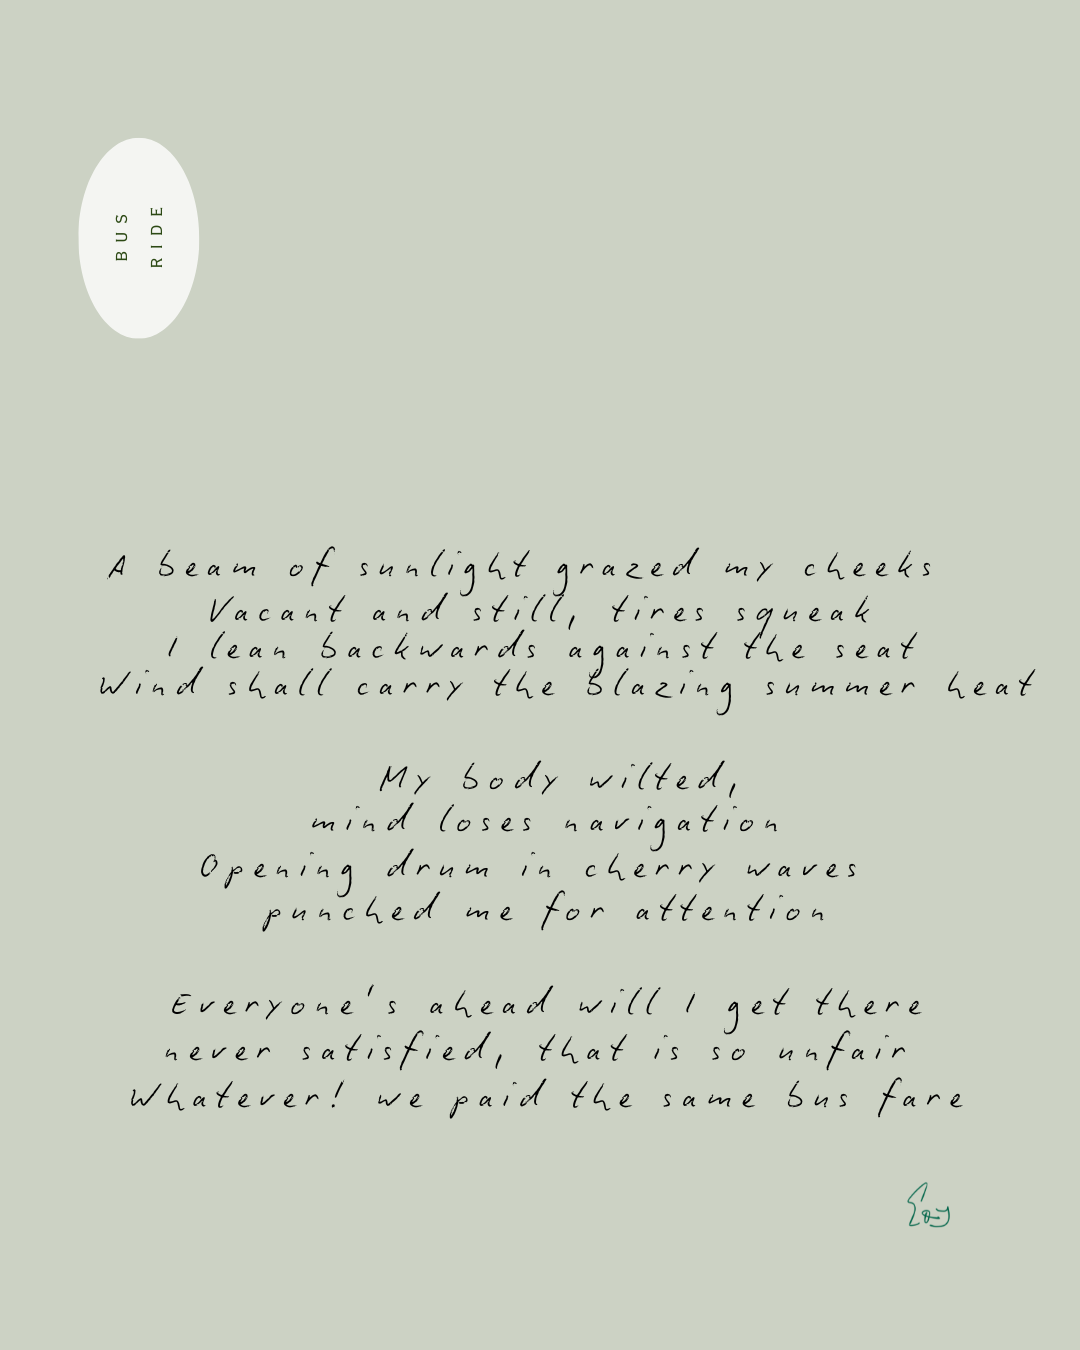 BUS
RIDE
A beam of sunlight grazed my cheeks
Vacant and still, tires squeak
I lean backwards against the seat
Wind shall carry the blazing summer heat
My body wilted,
mind loses navigation
Opening drum in cherry waves
punched me for attention
Everyone's ahead will I get there
never satisfied, that is so unfair
Whatever! we paid the same bus fare